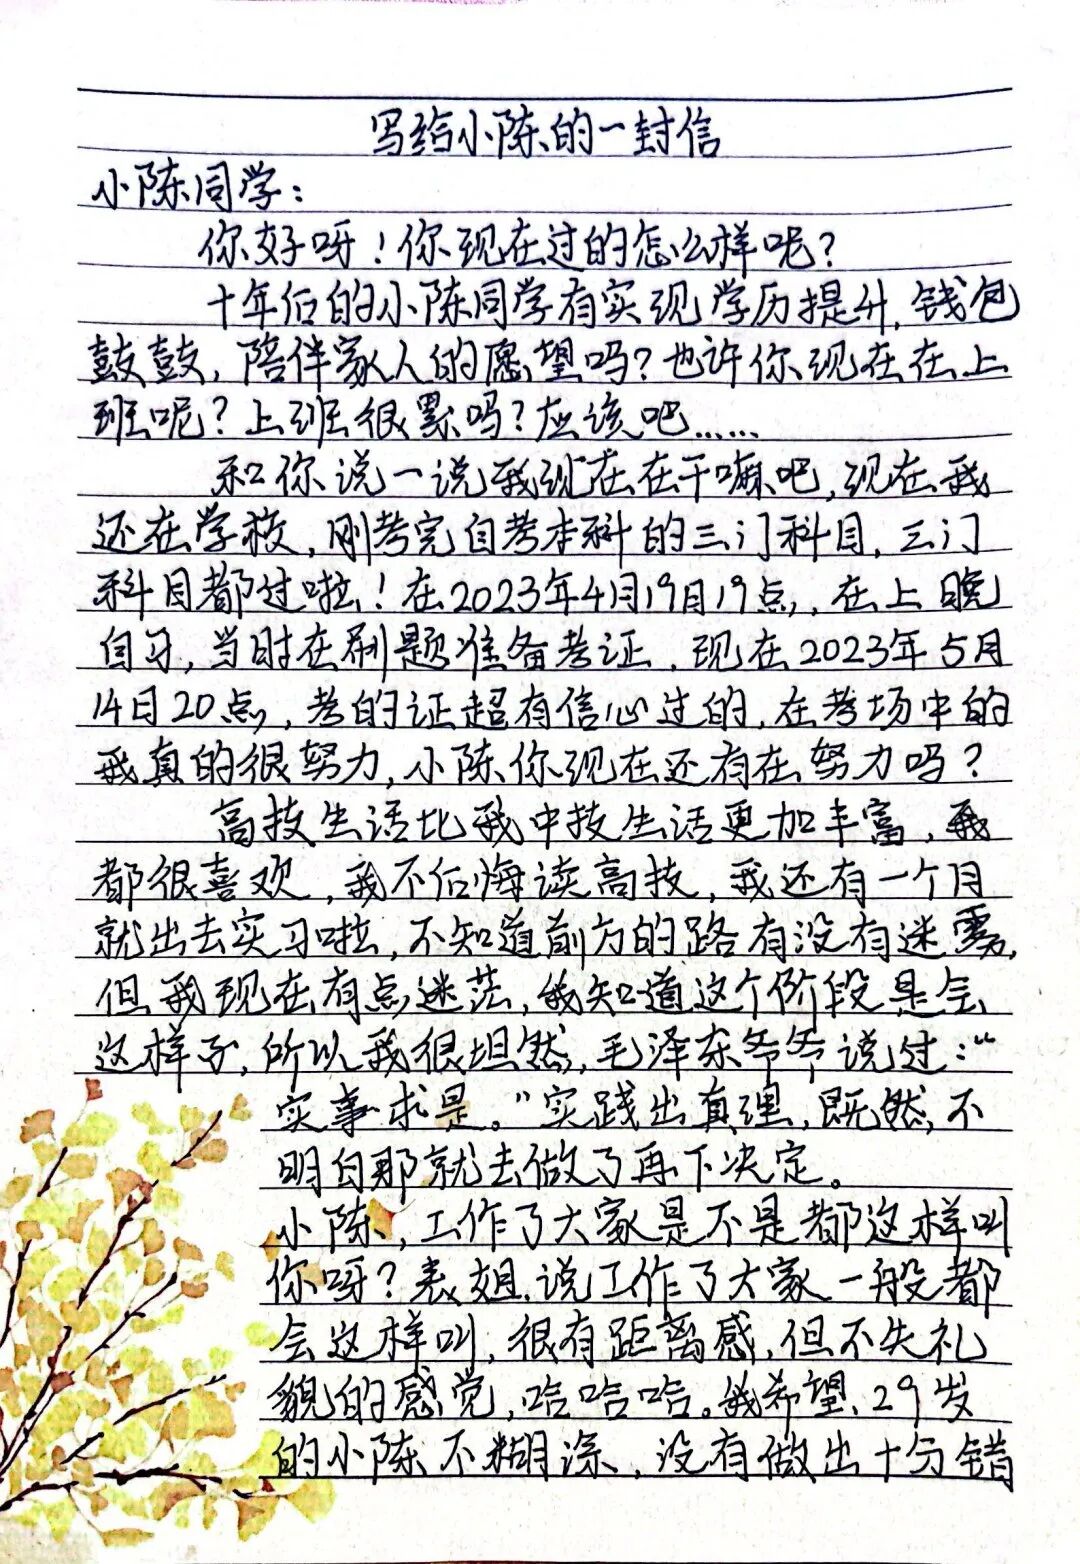 写给小陈的一封信
小陈同学：
你好呀！你现在过的怎么样呢？
十年后的小陈同学有实现学历提升，钱包
鼓鼓，陪伴家人的愿望吗？也许你现在在上
班呢？上班很累吗？应该吧……
和你说一说我现在在干嘛吧，现在我
还在学校，刚考完自考本科的三门科目，三门
科目都过啦！在2023年4月19日19点，在上晚
自习，当时在刷题准备考证，现在2023年5月
14日20点，考的证超有信心过的，在考场中的
我真的很努力，小陈你现在还有在努力吗？
高技生活比我中技生活更加丰富，我
都很喜欢，我不后悔读高技，我还有一个月
就出去实习啦，不知道前方的路有没有迷雾，
但我现在有点迷茫，我知道这个阶段是会
这样子，所以我很坦然，毛泽东爷爷说过：“
实事求是。”实践出真理，既然不
明白那就去做了再下决定。
小陈，工作了大家是不是都这样叫
你呀？表姐说工作了大家一般都
会这样叫，很有距离感，但不失礼
貌的感觉，哈哈哈。我希望，29岁
的小陈不糊涂，没有做出十分错